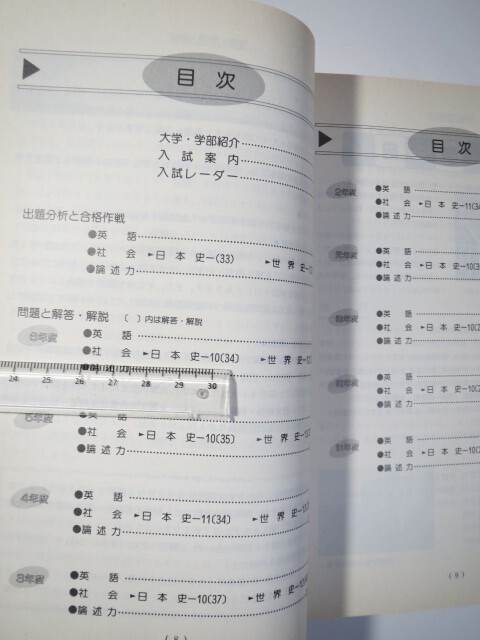 目次
大学・学部紹介
入試案内
入試レーダー
出題分析と合格作戦
●英語
●社会 ►日本史−(33) ►世界史−
●論述力
問題と解答・解説 ( )内は解答・解説
6年度 ●英語
●社会 ►日本史−10(34) ►世界史−
●論述力
24 25 26 27 28 29 30
5年度 ●英語
●社会 ►日本史−10(35) ►世界史−
●論述力
4年度 ●英語
●社会 ►日本史−11(34) ►世界史−
●論述力
3年度 ●英語
●社会 ►日本史−10(37) ►世界史−
●論述力
(8)
目次
2年度 ●英語
●社会 ►日本史−11(34
●論述力
元年度 ●英語
●社会 ►日本史−10(3
●論述力
63年度 ●英語
●社会 ►日本史−10(2
●論述力
62年度 ●英語
●社会 ►日本史−10(2
●論述力
61年度 ●英語
●社会 ►日本史−10(2
●論述力
(9)